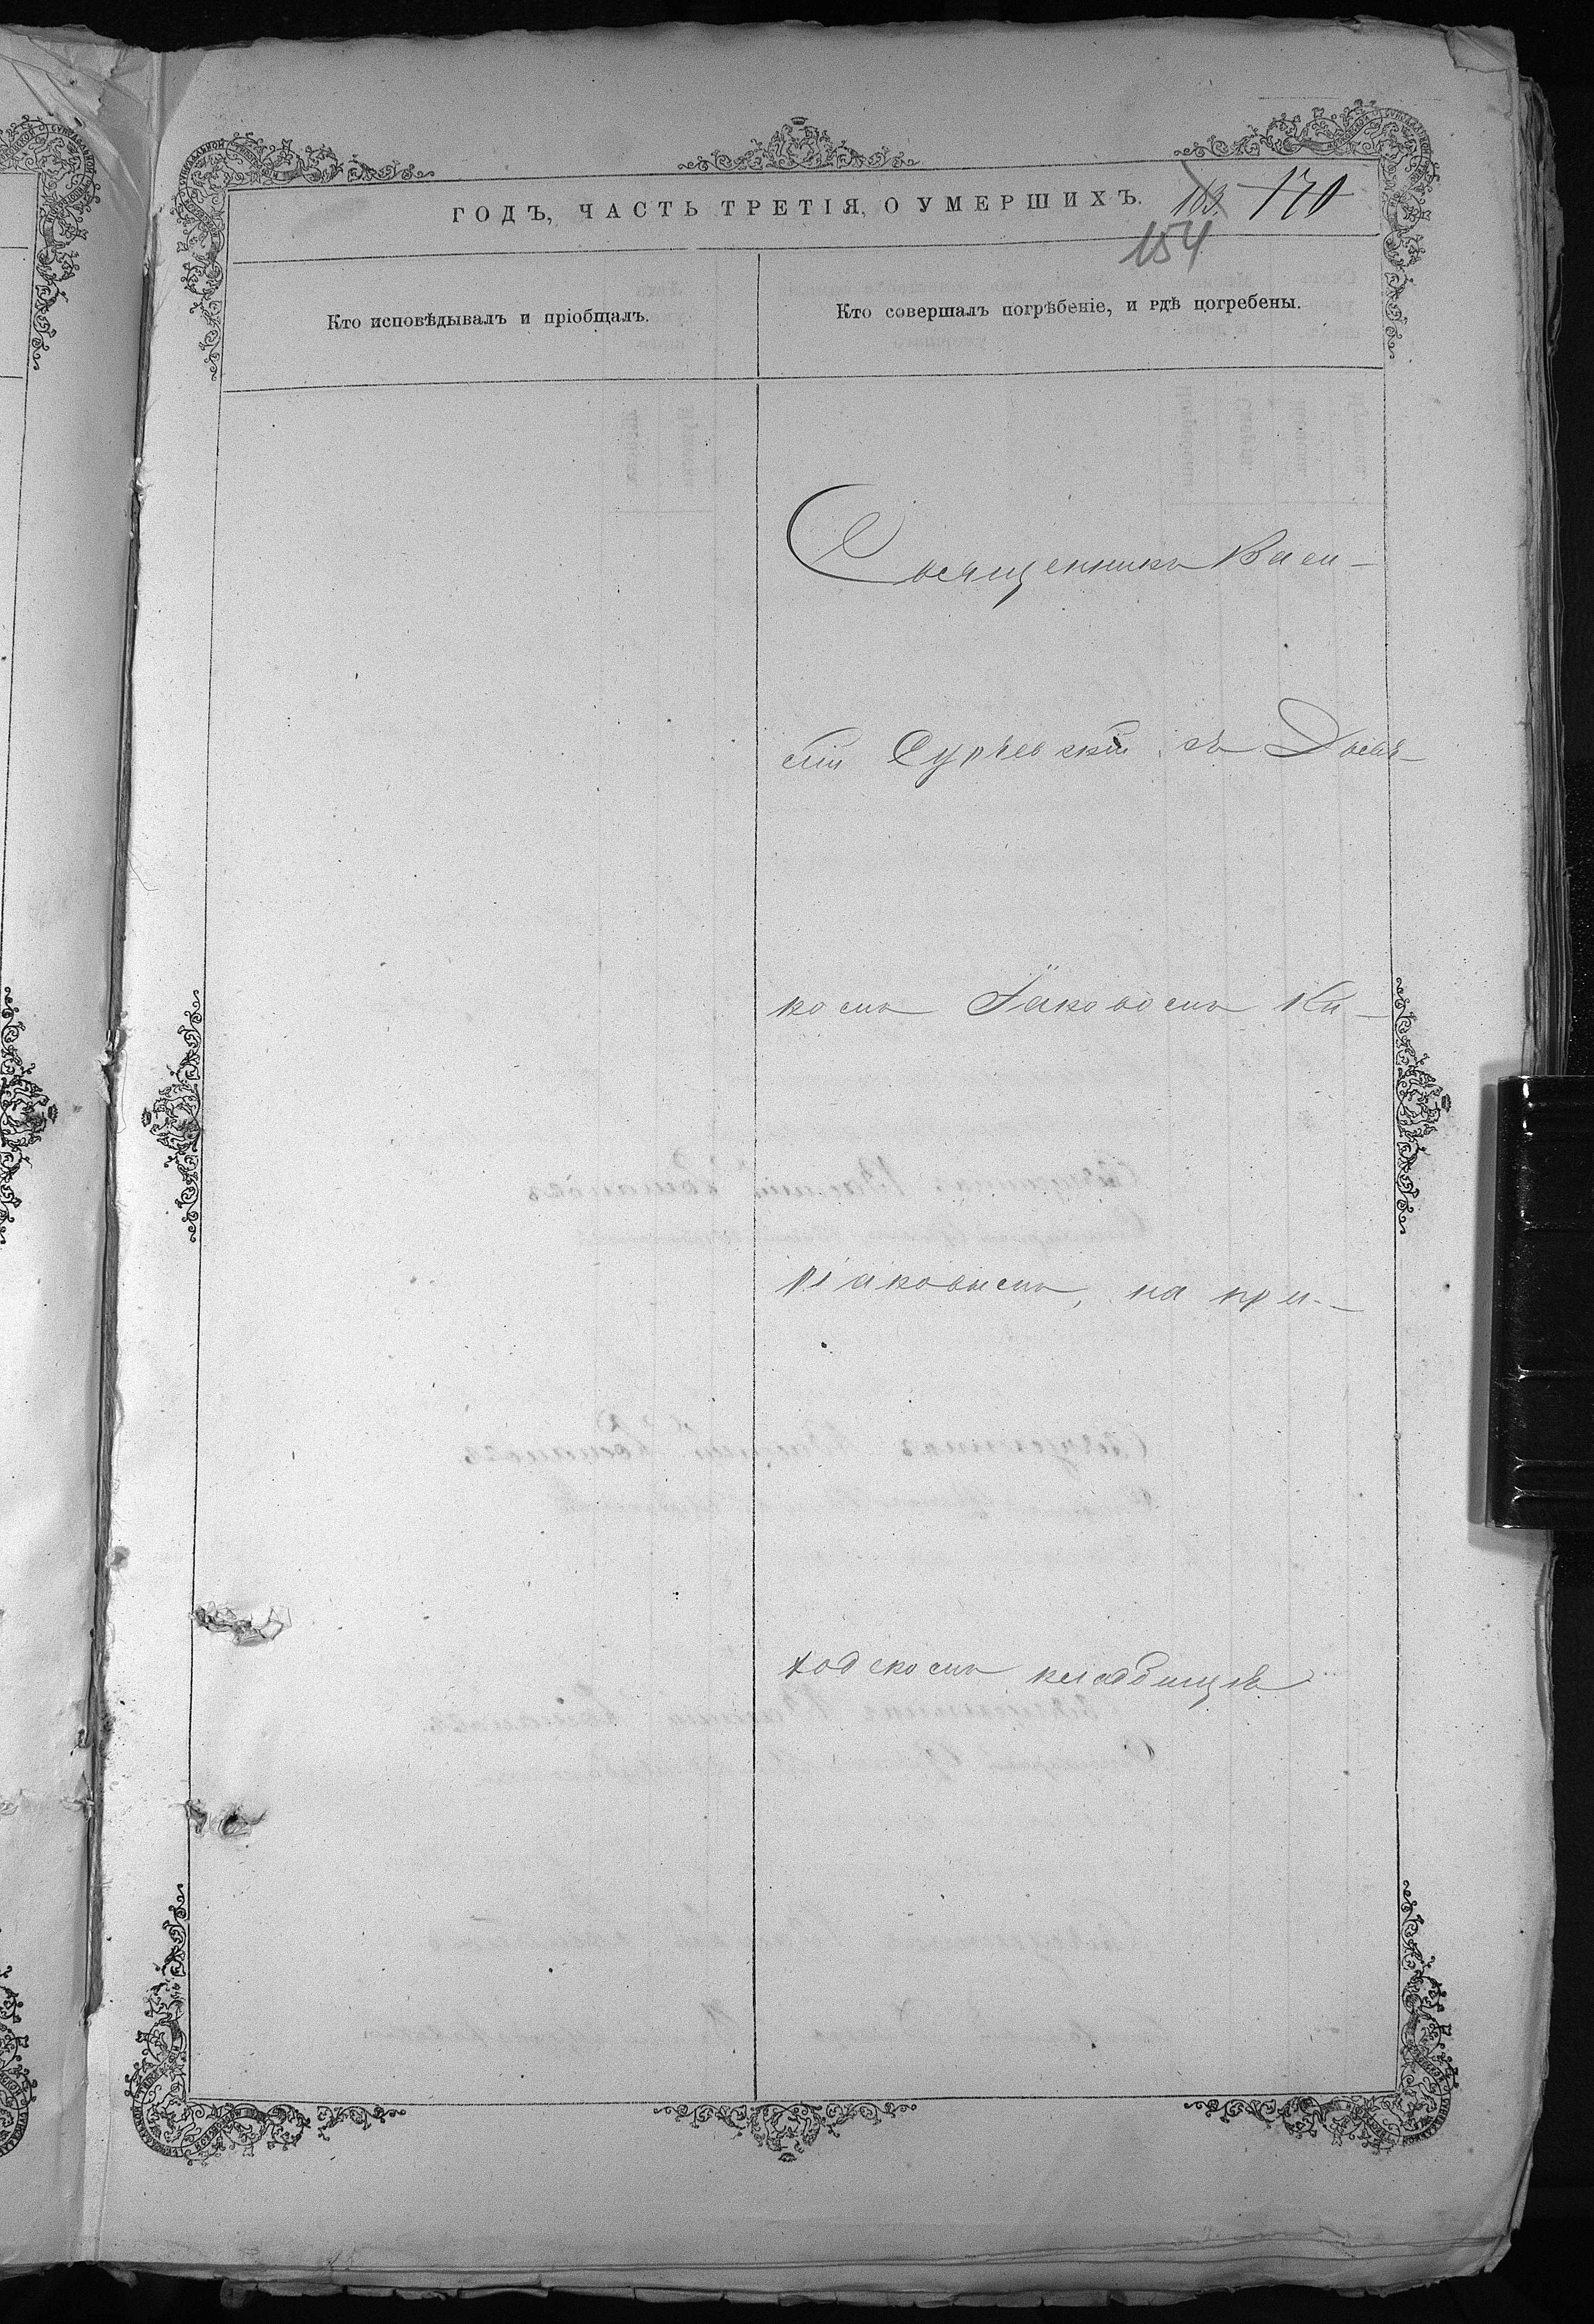 ГОДЪ, ЧАСТЬ ТРЕТІЯ, О УМЕРШИХЪ. 163. 170
154
Кто исповѣдывалъ и пріобщалъ.
Кто совершалъ погрѣбеніе, и гдѣ погребены.
Священникъ Васи-
лій съ Дьяч-
комъ Іаковомъ Ки-
ріаковымъ, на при-
ходскомъ кладбищѣ